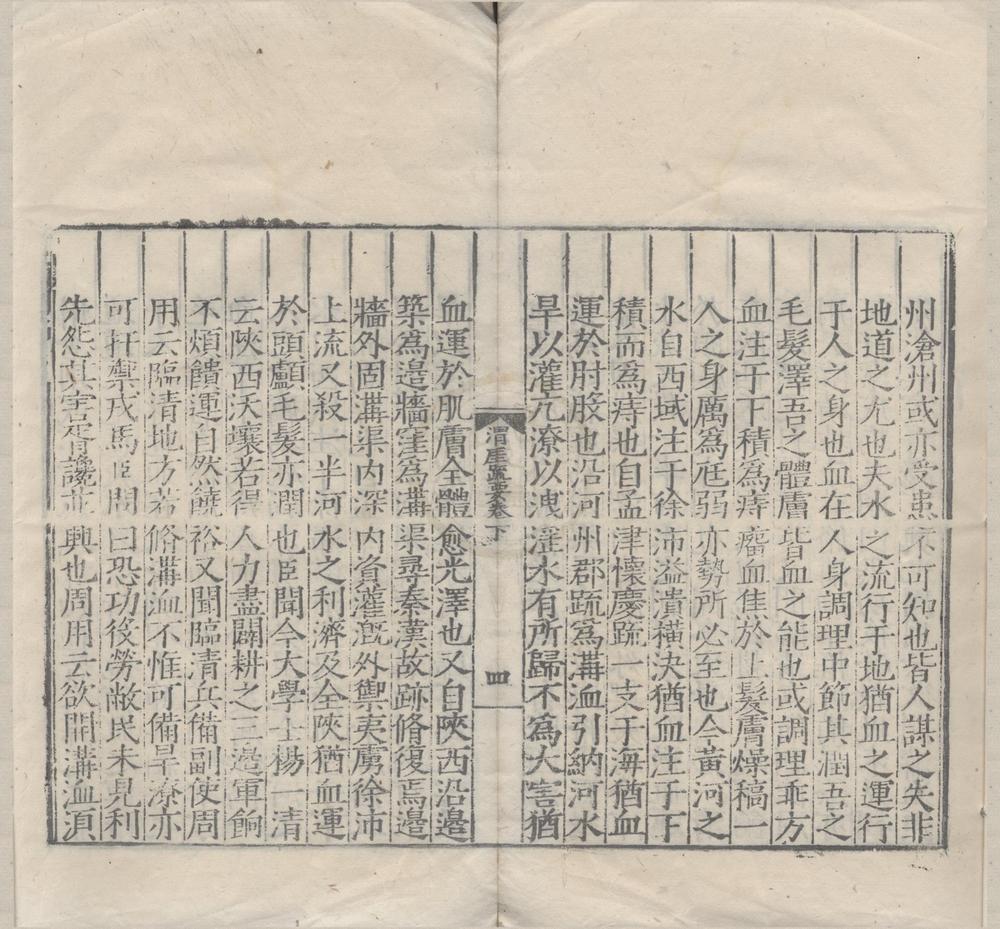 州滄州或亦受患不可知也皆人謀之失非
地道之尤也夫水之流行于地猶血之運行
于人之身也血在人身調理中節其潤吾之
毛髮澤吾之體膚皆血之能也或調理乖方
血注于下積為痔癰血隹於上髮膚燥稿一
人之身厲為尫弱亦勢所必至也今黃河之
水自西域注于徐沛溢潰橫決猶血注于下
積而為痔也自孟津懷慶疏一支于海猶血
運於肘股也沿河州郡疏為溝洫引納河水
旱以灌亢潦以洩滛水有所歸不為大害猶
渭厓疏要卷下
四
血運於肌膚全體愈光澤也又自陝西沿邊
築為邉牆窪為溝渠尋秦漢故跡脩復焉邊
牆外固溝渠内深内資灌漑外禦夷虜徐沛
上流又殺一半河水之利濟及全陝猶血運
於頭顱毛髮亦潤也臣聞今大學士楊一清
云陝西沃壤若得人力盡闢耕之三邊軍餉
不煩饋運自然饒裕又聞臨清兵備副使周
用云臨清地方若脩溝洫不惟可備旱潦亦
可扞禦戎馬臣問曰恐功役勞敝民未見利
先怨其害胥讒並興也周用云欲開溝洫須